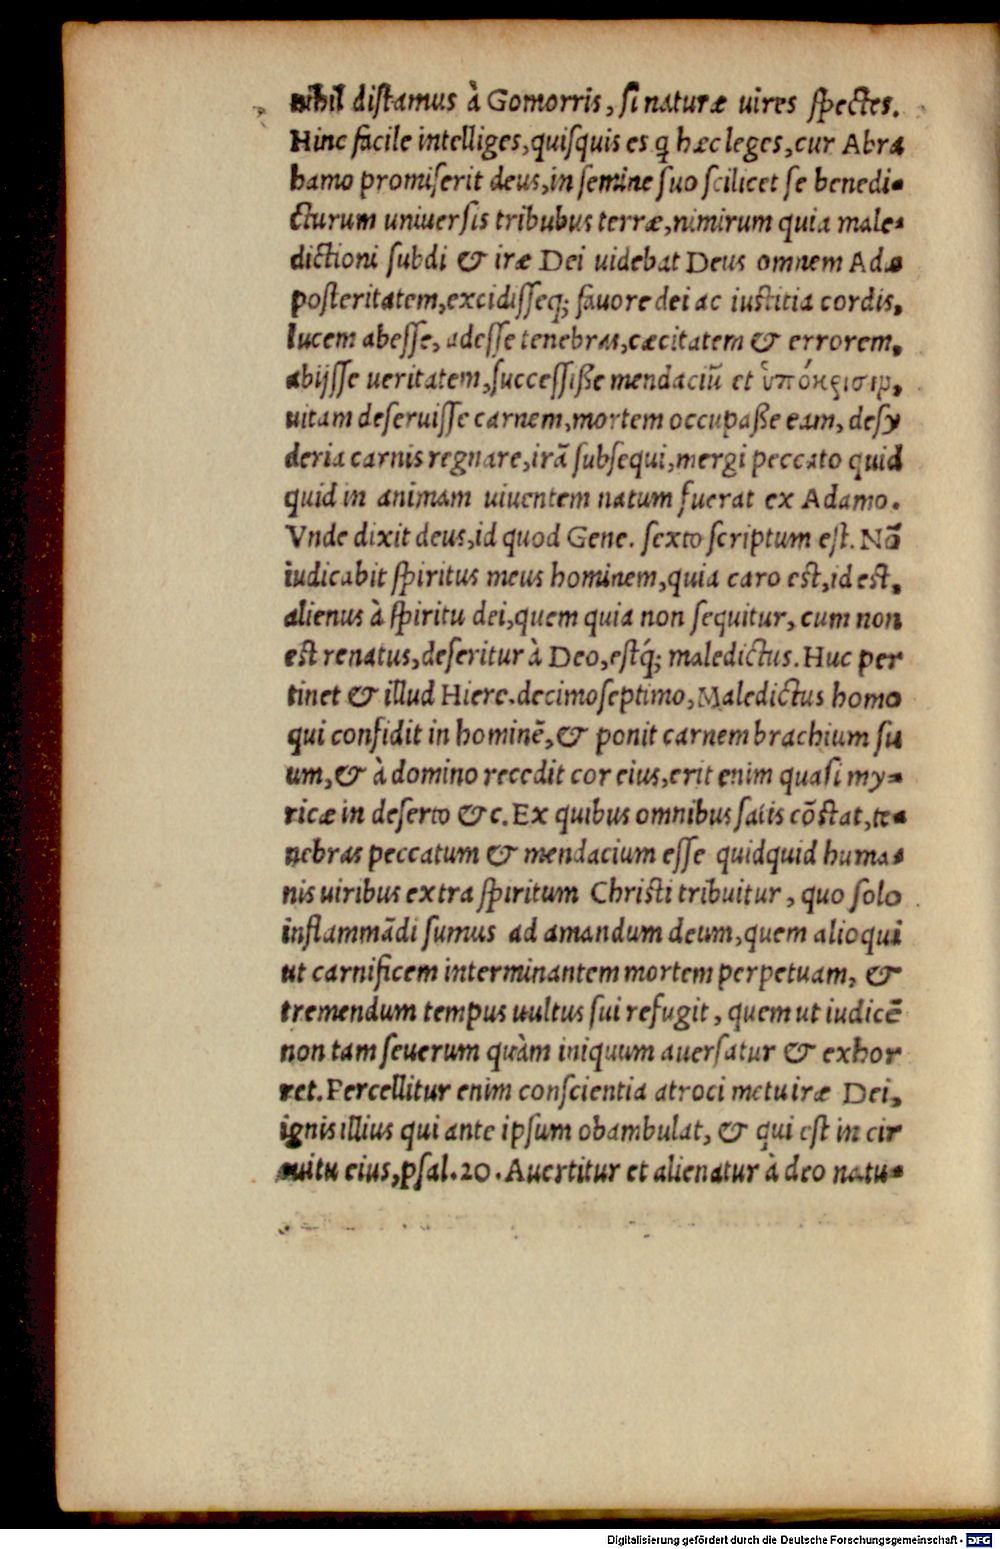 nihil distamus à Gomorris, si naturæ uires spectes.
Hinc facile intelliges, quisquis es q hæc leges, cur Abra
hamo promiserit deus, in semine suo scilicet se benedi-
cturum uniuersis tribubus terræ, nimirum quia male-
dictioni subdi & iræ Dei uidebat Deus omnem Adæ
posteritatem, excidisseq; fauore dei ac iustitia cordis,
lucem abesse, adesse tenebras, cæcitatem & errorem,
abijsse ueritatem, successiße mendaciū et ὑπόκρισιν,
uitam deseruisse carnem, mortem occupaße eam, desy
deria carnis regnare, irā subsequi, mergi peccato quid
quid in animam uiuentem natum fuerat ex Adamo.
Vnde dixit deus, id quod Gene. sexto scriptum est. Nō
iudicabit spiritus meus hominem, quia caro est, id est,
alienus à spiritu dei, quem quia non sequitur, cum non
est renatus, deseritur à Deo, estq́; maledictus. Huc per
tinet & illud Hiere. decimoseptimo, Maledictus homo
qui confidit in hominē, & ponit carnem brachium su
um, & à domino recedit cor eius, erit enim quasi my-
ricæ in deserto &c. Ex quibus omnibus satis cōstat, te-
nebras peccatum & mendacium esse quidquid huma-
nis uiribus extra spiritum Christi tribuitur, quo solo
inflammādi sumus ad amandum deum, quem alioqui
ut carnificem interminantem mortem perpetuam, &
tremendum tempus uultus sui refugit, quem ut iudicē
non tam seuerum quàm iniquum auersatur & exhor
ret. Percellitur enim conscientia atroci metu iræ Dei,
ignis illius qui ante ipsum obambulat, & qui est in cir
cuitu eius, psal. 20. Auertitur et alienatur à deo natu-
Digitalisierung gefördert durch die Deutsche Forschungsgemeinschaft - DFG